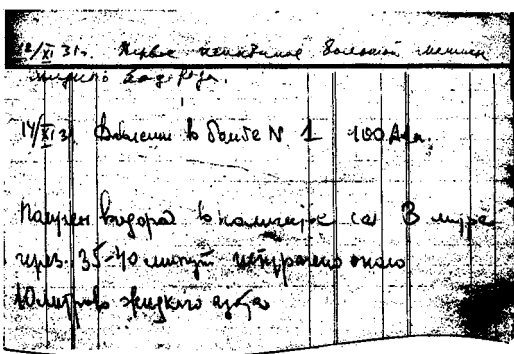 12/XI 31г. Первое испытание большой машины
жидкого водорода.
14/XI 31 Давление в бомбе N 1 100 Атм.
Получен водород в количестве са 3 литра
через 35-40 минут потрачено около
10 литров жидкого азота